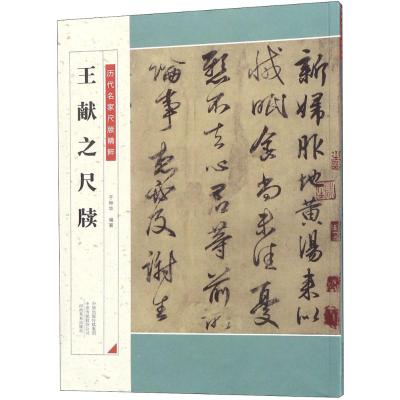 历代名家尺牍精粹
王献之尺牍
编著
新妇服地黄汤来似
减眠食尚未佳忧
悬不去心君等前所
论事想必及谢生